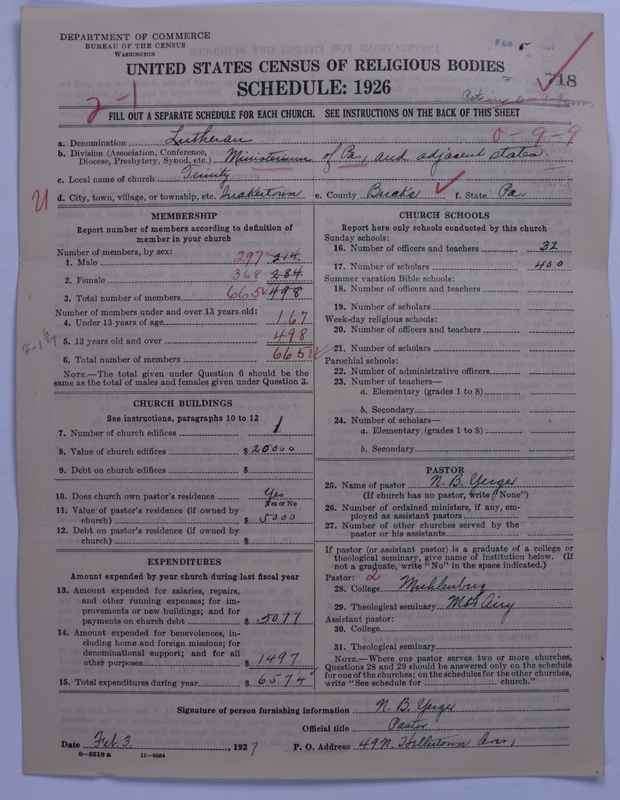 DEPARTMENT OF COMMERCE
BUREAU OF THE CENSUS
WASHINGTON
FEB 5
UNITED STATES CENSUS OF RELIGIOUS BODIES
SCHEDULE: 1926
718
2-1
FILL OUT A SEPARATE SCHEDULE FOR EACH CHURCH. SEE INSTRUCTIONS ON THE BACK OF THIS SHEET
0-9-9
a. Denomination Lutheran
b. Division (Association, Conference, Diocese, Presbytery, Synod, etc.) Ministerium of Pa, and adjacent states.
c. Local name of church Trinity
d. City, town, village, or township, etc. Quakertown e. County Bucks f. State Pa.
MEMBERSHIP
Report number of members according to definition of
member in your church
Number of members, by sex:
1. Male 297 214
2. Female 368 284
3. Total number of members 665 498
Number of members under and over 13 years old:
4. Under 13 years of age 167
5. 13 years old and over 498
6. Total number of members 665
NOTE.—The total given under Question 6 should be the
same as the total of males and females given under Question 3.
CHURCH BUILDINGS
See instructions, paragraphs 10 to 12
7. Number of church edifices 1
8. Value of church edifices $ 20000
9. Debt on church edifices $
10. Does church own pastor's residence Yes
Yes or No
11. Value of pastor's residence (if owned by
church) $ 5000
12. Debt on pastor's residence (if owned by
church) $
EXPENDITURES
Amount expended by your church during last fiscal year
13. Amount expended for salaries, repairs,
and other running expenses; for im-
provements or new buildings; and for
payments on church debt $ 5077
14. Amount expended for benevolences, in-
cluding home and foreign missions; for
denominational support; and for all
other purposes $ 1497
15. Total expenditures during year $ 6574
CHURCH SCHOOLS
Report here only schools conducted by this church
Sunday schools:
16. Number of officers and teachers 32
17. Number of scholars 400
Summer vacation Bible schools:
18. Number of officers and teachers
19. Number of scholars
Week-day religious schools:
20. Number of officers and teachers
21. Number of scholars
Parochial schools:
22. Number of administrative officers
23. Number of teachers—
a. Elementary (grades 1 to 8)
b. Secondary
24. Number of scholars—
a. Elementary (grades 1 to 8)
b. Secondary
PASTOR
25. Name of pastor N. B. Yerger
(If church has no pastor, write "None")
26. Number of ordained ministers, if any, em-
ployed as assistant pastors
27. Number of other churches served by the
pastor or his assistants
If pastor (or assistant pastor) is a graduate of a college or
theological seminary, give name of institution below. (If
not a graduate, write "No" in the space indicated.)
Pastor: 2
28. College Muhlenberg
29. Theological seminary Mt Airy
Assistant pastor:
30. College
31. Theological seminary
NOTE.—Where one pastor serves two or more churches,
Questions 28 and 29 should be answered only on the schedule
for one of the churches; on the schedules for the other churches,
write "See schedule for church."
Signature of person furnishing information N. B. Yerger
Official title Pastor
Date Feb. 3, 1927 P. O. Address 49 N. Hellertown Ave,
8-5518a 11-9084